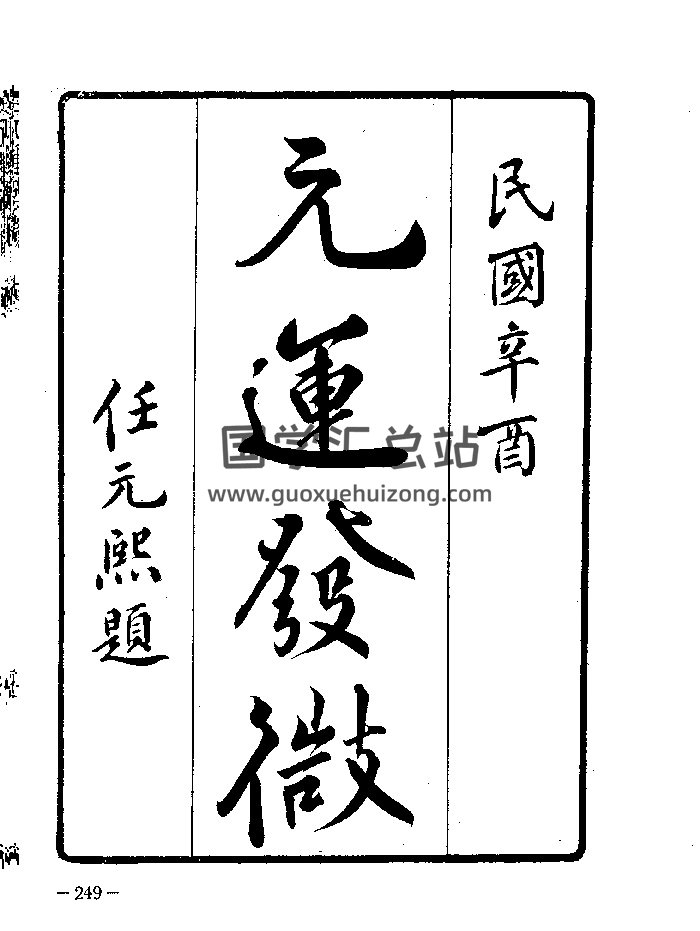 民國辛酉
元運發微
任元熙題
国学汇总站
www.guoxuehuizong.com
－249－